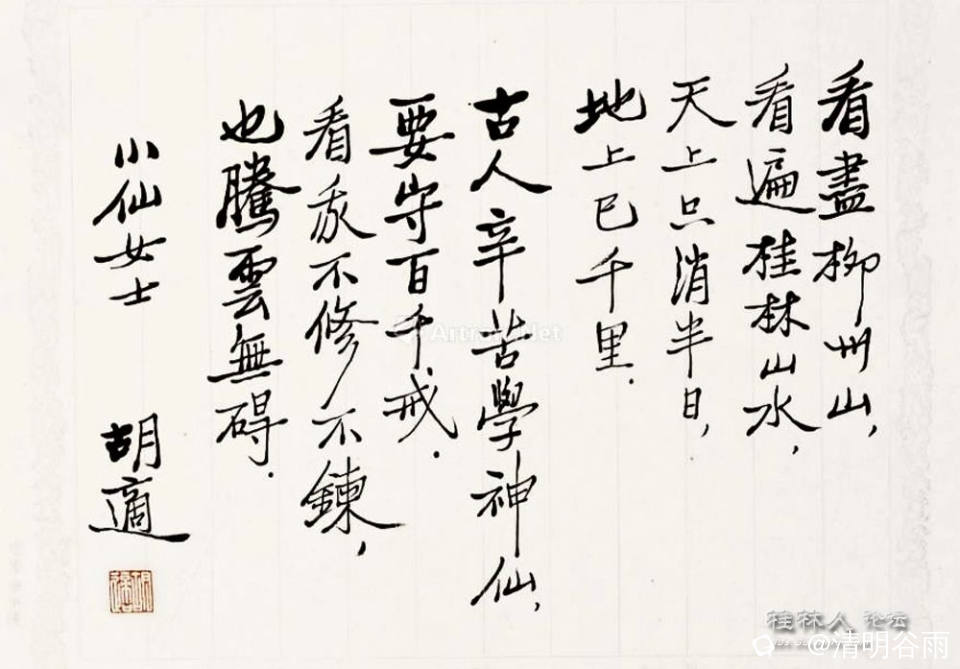 看盡柳州山,
看遍桂林山水,
天上只消半日,
地上已千里.
古人辛苦學神仙,
要守百千戒.
看我不修不鍊,
也騰雲無碍.
小仙女士
胡適
胡適
Artron.Net
桂林人 论坛
@清明谷雨